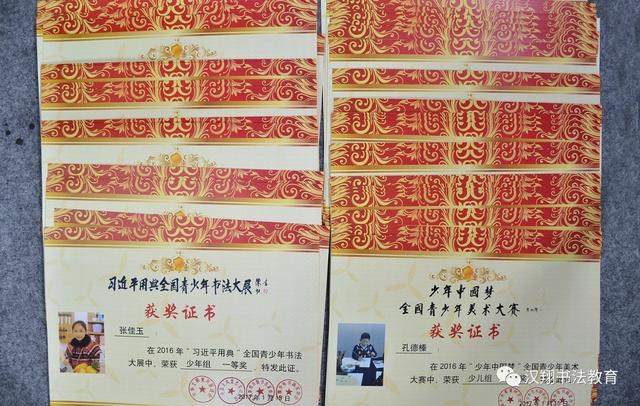 习近平用典全国青少年书法大展
获奖证书
张佳玉
在2016年“习近平用典”全国青少年书法
大展中、荣获 少年组 一等奖 、特发此证。
2017年1月18日
少年中国梦
全国青少年美术大赛
获奖证书
孔德榛
在2016年“少年中国梦”全国青少年美术
大赛中、荣获 少儿组
汉翔书法教育